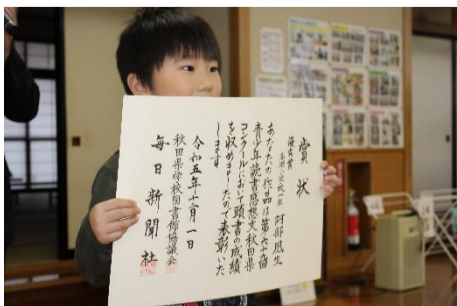 賞状
優秀賞
阿部 風生
あなたの作品は第六十九回
青少年読書感想文秋田県
コンクールにおいて頭書の成績
を収めましたので表彰いた
します
令和五年十二月一日
秋田県学校図書館協議会
毎日新聞社